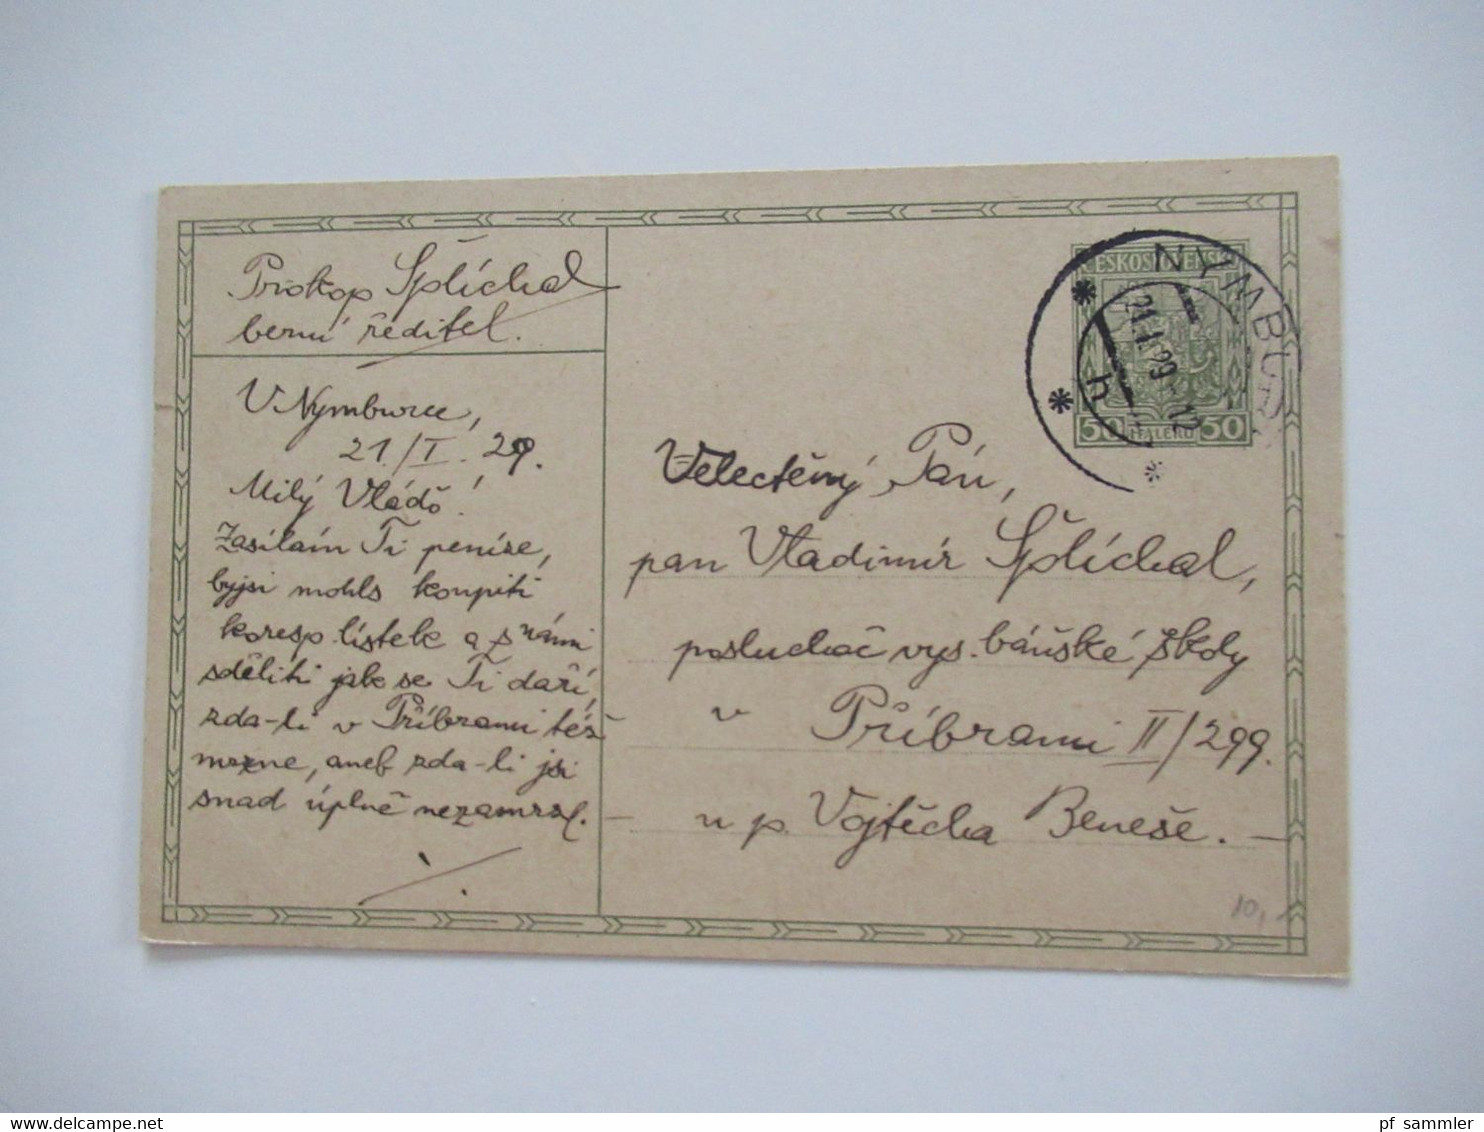 Prokop Šplíchal
berní ředitel.
V Nymburce,
21/I. 29.
Milý Vládo!
Zasílám Ti peníze,
byjsi mohls koupiti
koresp lístek a s námi
sděliti jak se Ti daří,
zda-li v Příbrami též
mrzne, aneb zda-li jsi
snad úplně nezamrzl. –
ČESKOSLOVENSKO
50 HALÉŘŮ 50
NYMBURK
21.I.29-12
h
Velectěný Pán,
pan Vladimír Šplíchal,
posluchač vys. báňské školy
v Příbrami II/299.
u p. Vojtěcha Beneše. –
10,-
delcampe.net
pf_sammler